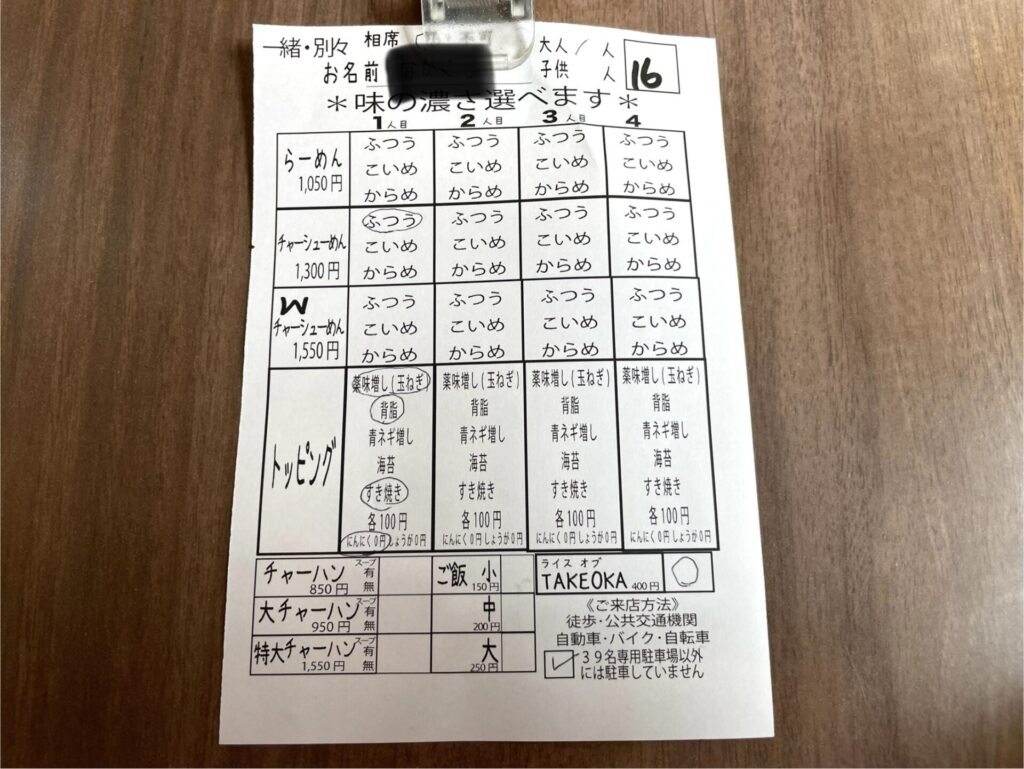 一緒・別々 相席 大人 / 人
お名前 子供 人 16
＊味の濃さ選べます＊
1人目 2人目 3人目 4
らーめん 1,050円
ふつう ふつう ふつう ふつう
こいめ こいめ こいめ こいめ
からめ からめ からめ からめ
チャーシューめん 1,300円
ふつう ふつう ふつう ふつう
こいめ こいめ こいめ こいめ
からめ からめ からめ からめ
W チャーシューめん 1,550円
ふつう ふつう ふつう ふつう
こいめ こいめ こいめ こいめ
からめ からめ からめ からめ
トッピング
薬味増し(玉ねぎ) 薬味増し(玉ねぎ) 薬味増し(玉ねぎ) 薬味増し(玉ねぎ)
背脂 背脂 背脂 背脂
青ネギ増し 青ネギ増し 青ネギ増し 青ネギ増し
海苔 海苔 海苔 海苔
すき焼き すき焼き すき焼き すき焼き
各100円 各100円 各100円 各100円
にんにく0円 しょうが0円 にんにく0円 しょうが0円 にんにく0円 しょうが0円 にんにく0円 しょうが0円
チャーハン 850円 スープ 有 無
大チャーハン 950円 スープ 有 無
特大チャーハン 1,550円 スープ 有 無
ご飯 小 150円
中 200円
大 250円
ライス オブ
TAKEOKA 400円 ○
《ご来店方法》
徒歩・公共交通機関
自動車・バイク・自転車
✓ 39名専用駐車場以外
には駐車していません